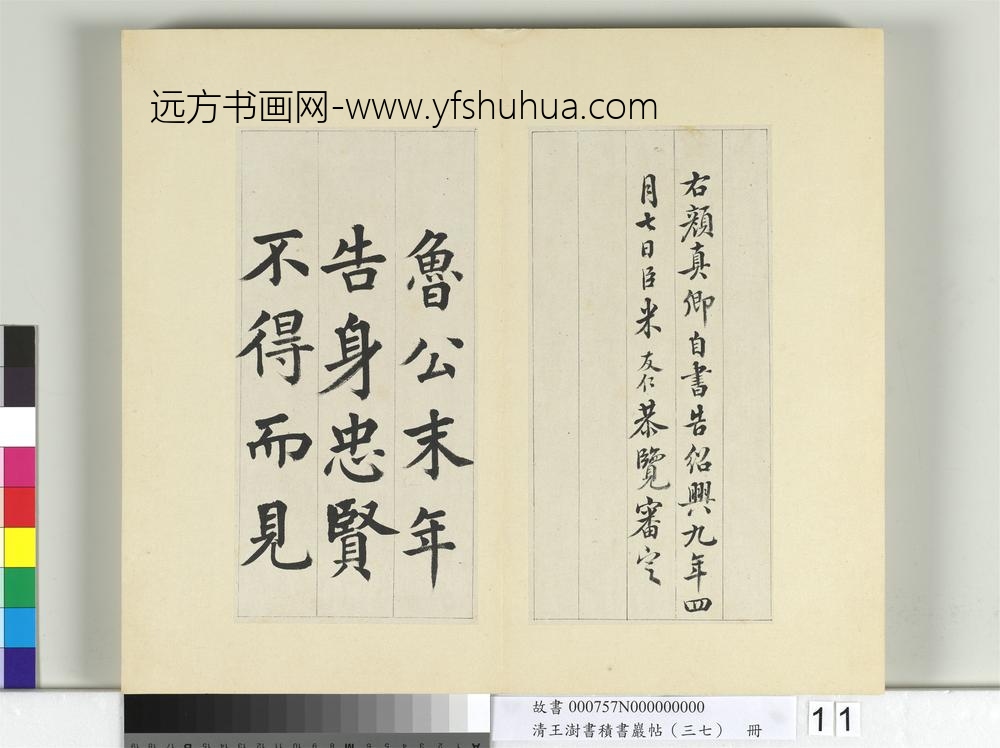 远方书画网-www.yfshuhua.com
右顏真卿自書告紹興九年四
月七日臣米友仁恭覽審定
魯公末年
告身忠賢
不得而見
故書 000757N000000000
清王澍書積書巖帖（三七） 冊
11